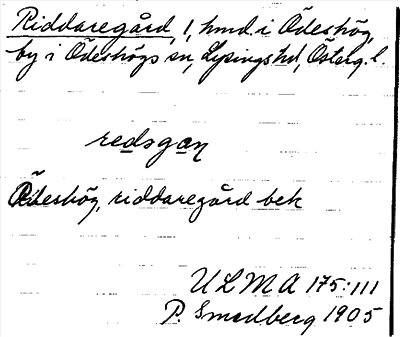 Riddaregård, 1, hmd. i Ödeshög,
by i Ödeshögs sn, Lysings hd, Österg. l.
redsgan
Ödeshög, riddaregård bek
ULMA 175:111
P. Smedberg 1905